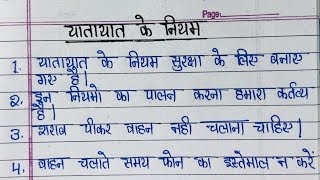 Page:
यातायात के नियम
1. यातायात के नियम सुरक्षा के लिए बनाए
गए है।
2. इन नियमो का पालन करना हमारा कर्तव्य
है।
3. शराब पीकर वाहन नही चलाना चाहिए।
4. वाहन चलाते समय फोन का इस्तेमाल न करें